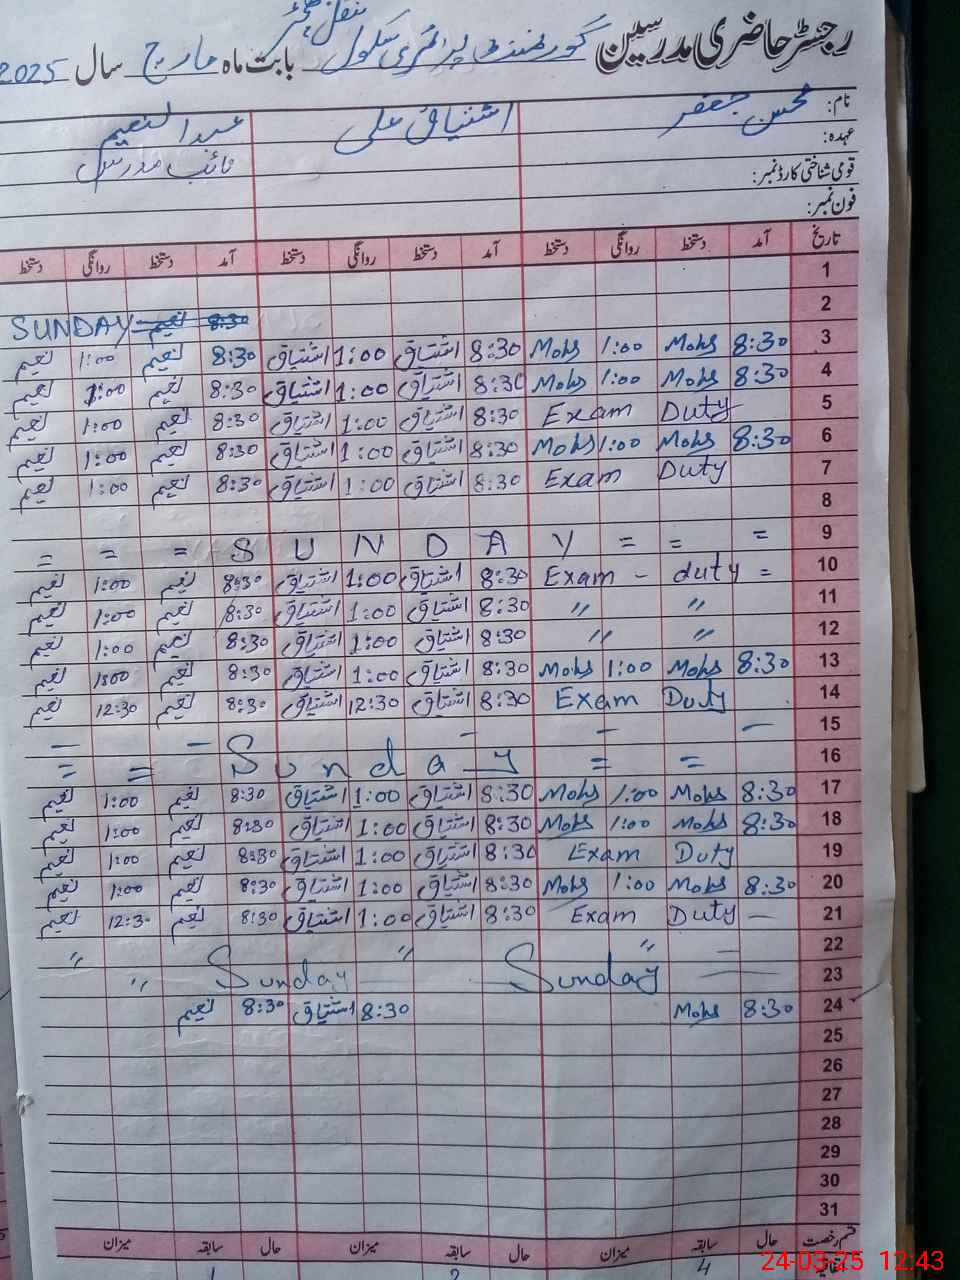 رجسٹر حاضری مدرسین گورنمنٹ پرائمری سکول بابت ماہ مارچ سال 2025
نام: محسن جعفر اشتیاق علی عبدالنعیم
عہدہ: نائب مدرس
قومی شناختی کارڈ نمبر:
فون نمبر:
تاریخ آمد دستخط روانگی دستخط آمد دستخط روانگی دستخط آمد دستخط روانگی دستخط
1
2
SUNDAY نعیم 8:30
3 8:30 Mohs 1:00 Mohs 8:30 اشتیاق 1:00 اشتیاق 8:30 نعیم 1:00 نعیم
4 8:30 Mohs 1:00 Mohs 8:30 اشتیاق 1:00 اشتیاق 8:30 نعیم 1:00 نعیم
5 Exam Duty 8:30 اشتیاق 1:00 اشتیاق 8:30 نعیم 1:00 نعیم
6 8:30 Mohs 1:00 Mohs 8:30 اشتیاق 1:00 اشتیاق 8:30 نعیم 1:00 نعیم
7 Exam Duty 8:30 اشتیاق 1:00 اشتیاق 8:30 نعیم 1:00 نعیم
8
9 = = = S U N D A Y = = =
10 Exam - duty = 8:30 اشتیاق 1:00 اشتیاق 8:30 نعیم 1:00 نعیم
11 " " 8:30 اشتیاق 1:00 اشتیاق 8:30 نعیم 1:00 نعیم
12 " " 8:30 اشتیاق 1:00 اشتیاق 8:30 نعیم 1:00 نعیم
13 8:30 Mohs 1:00 Mohs 8:30 اشتیاق 1:00 اشتیاق 8:30 نعیم 1:00 نعیم
14 Exam Duty 8:30 اشتیاق 12:30 اشتیاق 8:30 نعیم 12:30 نعیم
15 - - - - -
16 = = Sunday = =
17 8:30 Mohs 1:00 Mohs 8:30 اشتیاق 1:00 اشتیاق 8:30 نعیم 1:00 نعیم
18 8:30 Mohs 1:00 Mohs 8:30 اشتیاق 1:00 اشتیاق 8:30 نعیم 1:00 نعیم
19 Exam Duty 8:30 اشتیاق 1:00 اشتیاق 8:30 نعیم 1:00 نعیم
20 8:30 Mohs 1:00 Mohs 8:30 اشتیاق 1:00 اشتیاق 8:30 نعیم 1:00 نعیم
21 Exam Duty - 8:30 اشتیاق 1:00 اشتیاق 8:30 نعیم 12:30 نعیم
22 " " "
23 " Sunday Sunday
24 8:30 Mohs 8:30 اشتیاق 8:30 نعیم
25
26
27
28
29
30
31
قسم رخصت حال سابقہ میزان حال سابقہ میزان حال سابقہ میزان
اتفاقیہ 4 2 1
24-03-25 12:43